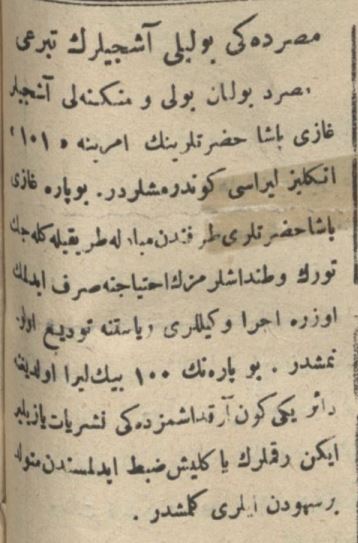 مصرده‌كی بولیلی آشجیلرك تبرعی
مصرد بولنان بولی و منكنه‌لی آشجیلر
غازی پاشا حضرتلرینك امرینه «۱۰۱»
انكلیز لیراسی كوندرمشلردر. بو پاره غازی
پاشا حضرتلری طرفندن مبادله طریقیله كله‌جك
تورك وطنداشلرمزك احتیاجنه صرف ایدلمك
اوزره اجرا وكیللری ریاستنه تودیع اولو-
نمشدر . بو پاره‌نك ۱۰۰ بیك لیرا اولدیغنه
دائر یكی كون آرقداشمزده‌كی نشریات یازیلیر
ایكن رقملرك یا كلیش ضبط ایدلمسندن متولد
بر سهودن ایلری كلمشدر .